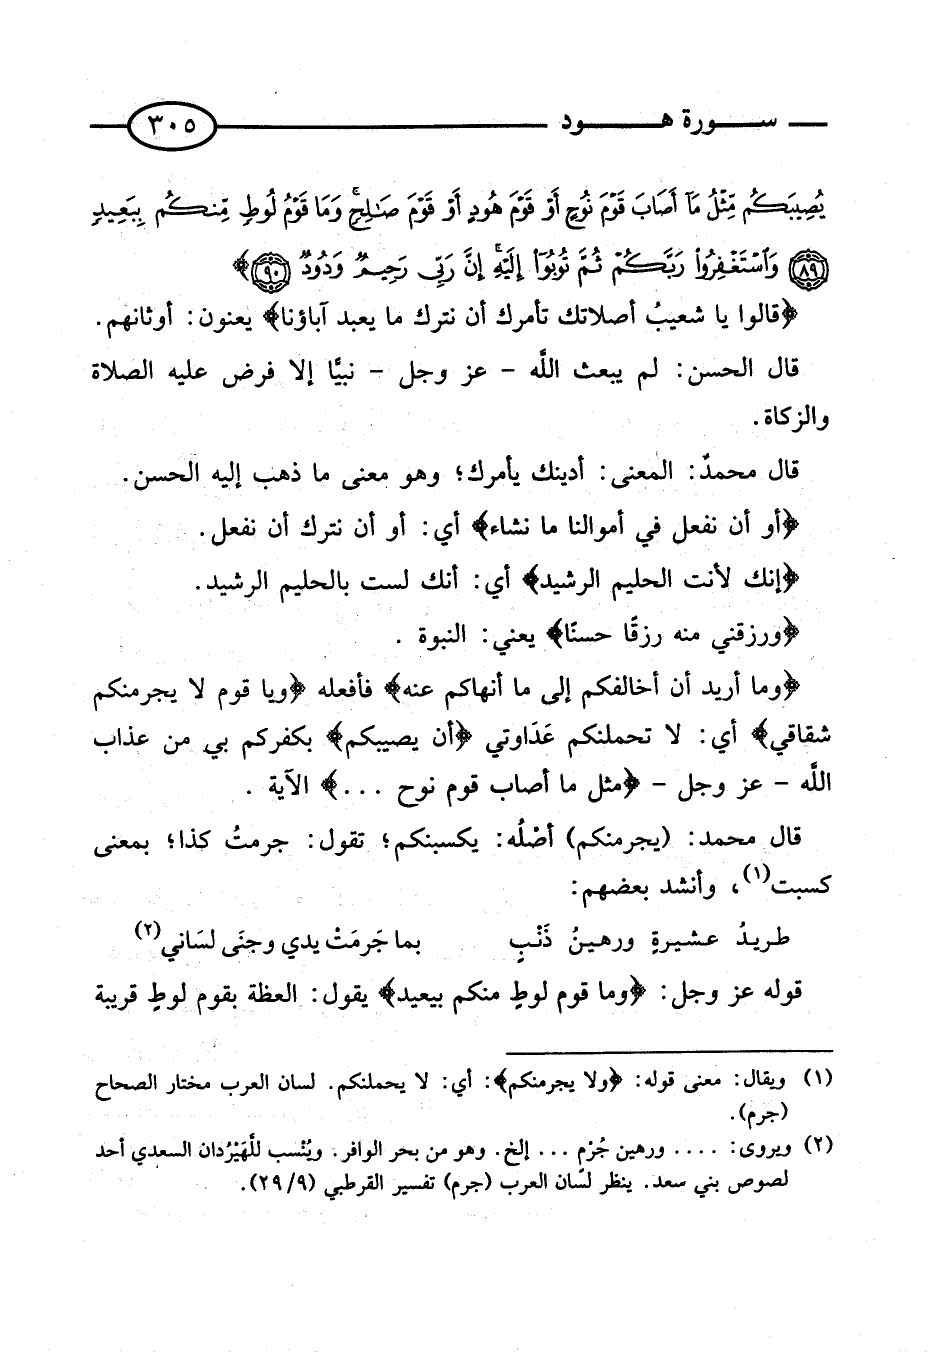 سورة هود ٣٠٥
يُصِيبَكُم مِّثْلُ مَآ أَصَابَ قَوْمَ نُوحٍ أَوْ قَوْمَ هُودٍ أَوْ قَوْمَ صَٰلِحٍ ۚ وَمَا قَوْمُ لُوطٍ مِّنكُم بِبَعِيدٍ
٨٩ وَٱسْتَغْفِرُوا۟ رَبَّكُمْ ثُمَّ تُوبُوٓا۟ إِلَيْهِ ۚ إِنَّ رَبِّى رَحِيمٌ وَدُودٌ ٩٠﴾
﴿قالوا يا شعيبُ أصلاتك تأمرك أن نترك ما يعبد آباؤنا﴾ يعنون: أوثانهم.
قال الحسن: لم يبعث اللَّه - عز وجل - نبيًّا إلا فرض عليه الصلاة
والزكاة.
قال محمدٌ: المعنى: أدينك يأمرك؛ وهو معنى ما ذهب إليه الحسن.
﴿أو أن نفعل في أموالنا ما نشاء﴾ أي: أو أن نترك أن نفعل.
﴿إنك لأنت الحليم الرشيد﴾ أي: أنك لست بالحليم الرشيد.
﴿ورزقني منه رزقًا حسنًا﴾ يعني: النبوة .
﴿وما أريد أن أخالفكم إلى ما أنهاكم عنه﴾ فأفعله ﴿ويا قوم لا يجرمنكم
شقاقي﴾ أي: لا تحملنكم عَدَاوتي ﴿أن يصيبكم﴾ بكفركم بي من عذاب
اللَّه - عز وجل - ﴿مثل ما أصاب قوم نوح ...﴾ الآية .
قال محمد: (يجرمنكم) أصْلُه: يكسبنكم؛ تقول: جرمتُ كذا؛ بمعنى
كسبت(١)، وأنشد بعضهم:
طريدُ عشيرةٍ ورهينُ ذَنْبٍ بما جَرمَتْ يدي وجنَى لسَاني(٢)
قوله عز وجل: ﴿وما قوم لوطٍ منكم ببعيد﴾ يقول: العظة بقوم لوطٍ قريبة
(١) ويقال: معنى قوله: ﴿ولا يجرمنكم﴾: أي: لا يحملنكم. لسان العرب مختار الصحاح
(جرم).
(٢) ويروى: .... ورهين جُرْم ... إلخ. وهو من بحر الوافر. ويُنْسب للْهَيْرُدان السعدي أحد
لصوص بني سعد. ينظر لسّان العرب (جرم) تفسير القرطبي (٢٩/٩).